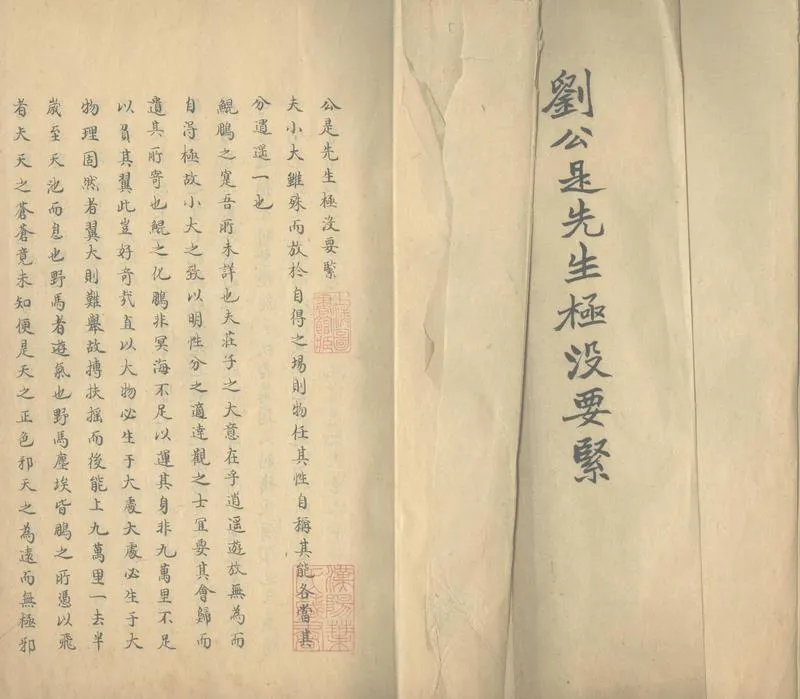 劉公是先生極没要緊
公是先生極没要緊
夫小大雖殊而放於自得之場則物任其性自稱其能各當其
分逍遥一也
鯤鵬之寔吾所未詳也夫莊子之大意在乎逍遥遊放無為而
自得極故小大之致以明性分之適達觀之士冝要其會歸而
遺其所寄也鯤之化鵬非冥海不足以運其身非九萬里不足
以負其翼此豈好奇哉直以大物必生于大處大處必生于大
物理固然者翼大則難舉故摶扶摇而後能上九萬里一去半
歲至天池而息也野馬者遊氣也野馬塵埃皆鵬之所憑以飛
者夫天之蒼蒼竟未知便是天之正色邪天之為遠而無極邪
上海圖
書館藏
漢陽葉